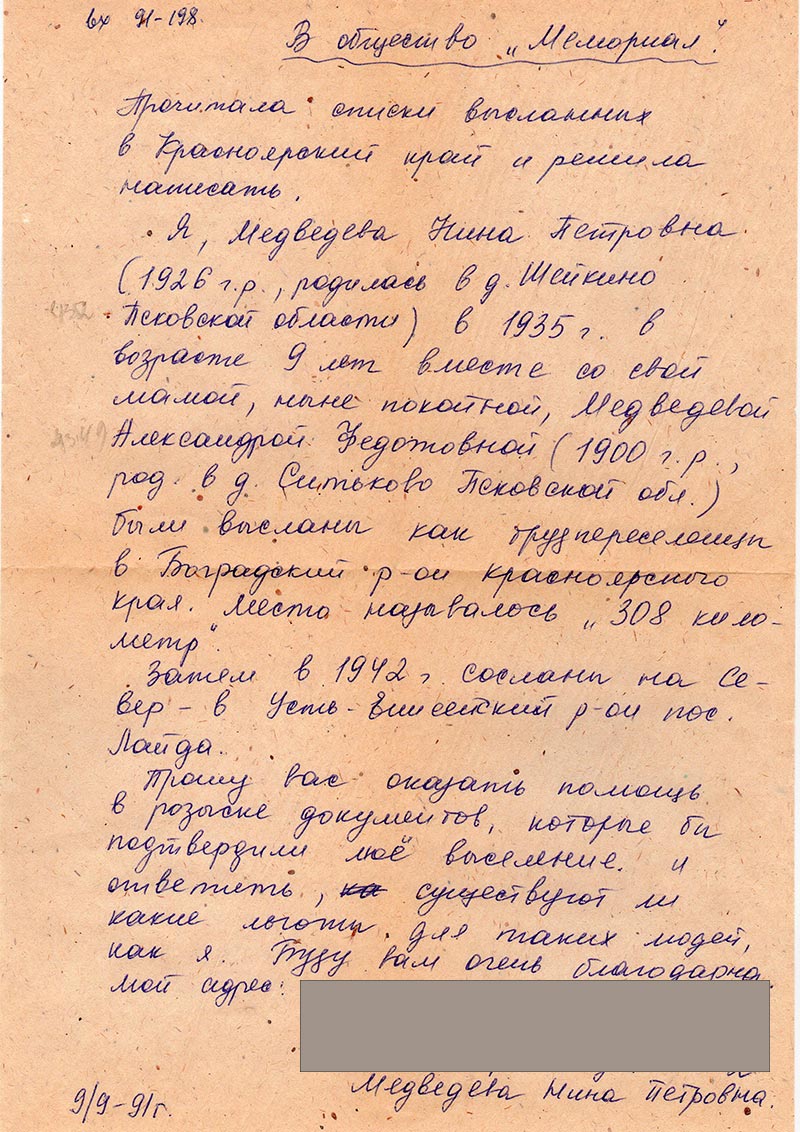 вх 91-198.
В общество „Мемориал".
Прочитала списки высланных
в Красноярский край и решила
написать.
Я, Медведева Нина Петровна
(1926 г.р., родилась в д. Шейкино
Псковской области) в 1935 г. в
возрасте 9 лет вместе со свой
мамой, ныне покойной, Медведевой
Александрой Федотовной (1900 г.р.,
род. в д. Ситьково Псковской обл.)
были высланы как трудпереселенцы
в Боградский р-он Красноярского
края. Место называлось „308 кило-
метр".
Затем в 1942 г. сосланы на Се-
вер - в Усть-Енисейский р-он пос.
Лайда.
Прошу вас оказать помощь
в розыске документов, которые бы
подтвердили моё выселение. и
ответить, существуют ли
какие льготы для таких людей,
как я. Буду вам очень благодарна.
мой адрес:
Медведева Нина Петровна.
9/9-91г.